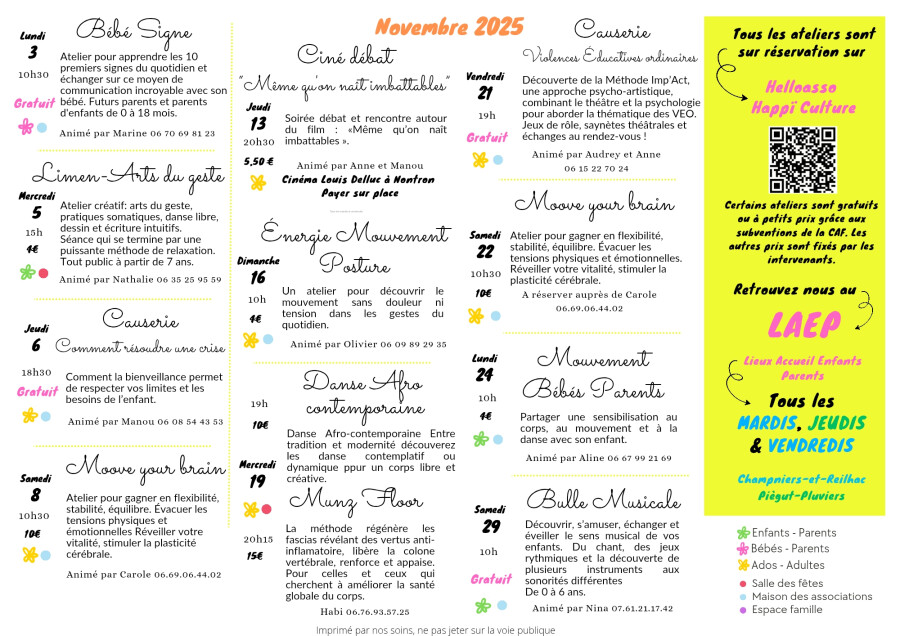 Bébé Signe
Lundi
3
10h30
Gratuit
Atelier pour apprendre les 10
premiers signes du quotidien et
échanger sur ce moyen de
communication incroyable avec son
bébé. Futurs parents et parents
d'enfants de 0 à 18 mois.
Animé par Marine 06 70 69 81 23
Limen-Arts du geste
Mercredi
5
15h
4€
Atelier créatif: arts du geste,
pratiques somatiques, danse libre,
dessin et écriture intuitifs.
Séance qui se termine par une
puissante méthode de relaxation.
Tout public à partir de 7 ans.
Animé par Nathalie 06 35 25 95 59
Causerie
Comment résoudre une crise
Jeudi
6
18h30
Gratuit
Comment la bienveillance permet
de respecter vos limites et les
besoins de l'enfant.
Animé par Manou 06 08 54 43 53
Moove your brain
Samedi
8
10h30
10€
Atelier pour gagner en flexibilité,
stabilité, équilibre. Évacuer les
tensions physiques et
émotionnelles Réveiller votre
vitalité, stimuler la plasticité
cérébrale.
Animé par Carole 06.69.06.44.02
Novembre 2025
Ciné débat
"Même qu'on naît imbattables"
Jeudi
13
20h30
5,50 €
Soirée débat et rencontre autour
du film : «Même qu'on naît
imbattables ».
Animé par Anne et Manou
Cinéma Louis Delluc à Nontron
Payer sur place
Énergie Mouvement
Posture
Dimanche
16
10h
4€
Un atelier pour découvrir le
mouvement sans douleur ni
tension dans les gestes du
quotidien.
Animé par Olivier 06 09 89 29 35
Danse Afro
contemporaine
19h
10€
Danse Afro-contemporaine Entre
tradition et modernité découverez
les danse contemplatif ou
dynamique ppur un corps libre et
créative.
Mercredi
19
Munz Floor
20h15
15€
La méthode régénère les
fascias révélant des vertus anti-
inflamatoire, libère la colone
vertébrale, renforce et appaise.
Pour celles et ceux qui
cherchent à améliorer la santé
globale du corps.
Habi 06.76.93.57.25
Causerie
Violences Éducatives ordinaires
Vendredi
21
19h
Gratuit
Découverte de la Méthode Imp'Act,
une approche psycho-artistique,
combinant le théâtre et la psychologie
pour aborder la thématique des VEO.
Jeux de rôle, saynètes théâtrales et
échanges au rendez-vous !
Animé par Audrey et Anne
06 15 22 70 24
Moove your brain
Samedi
22
10h30
10€
Atelier pour gagner en flexibilité,
stabilité, équilibre. Évacuer les
tensions physiques et émotionnelles.
Réveiller votre vitalité, stimuler la
plasticité cérébrale.
A réserver auprès de Carole
06.69.06.44.02
Mouvement
Bébés Parents
Lundi
24
10h
4€
Partager une sensibilisation au
corps, au mouvement et à la
danse avec son enfant.
Animé par Aline 06 67 99 21 69
Bulle Musicale
Samedi
29
10h
Gratuit
Découvrir, s'amuser, échanger et
éveiller le sens musical de vos
enfants. Du chant, des jeux
rythmiques et la découverte de
plusieurs instruments aux
sonorités différentes
De 0 à 6 ans.
Animé par Nina 07.61.21.17.42
Tous les ateliers sont
sur réservation sur
Helloasso
Happï Culture
Certains ateliers sont gratuits
ou à petits prix grâce aux
subventions de la CAF. Les
autres prix sont fixés par les
intervenants.
Retrouvez nous au
LAEP
Lieux Accueil Enfants
Parents
Tous les
MARDIS, JEUDIS
& VENDREDIS
Champniers-et-Reilhac
Piègut-Pluviers
Enfants - Parents
Bébés - Parents
Ados - Adultes
Salle des fêtes
Maison des associations
Espace famille
Imprimé par nos soins, ne pas jeter sur la voie publique